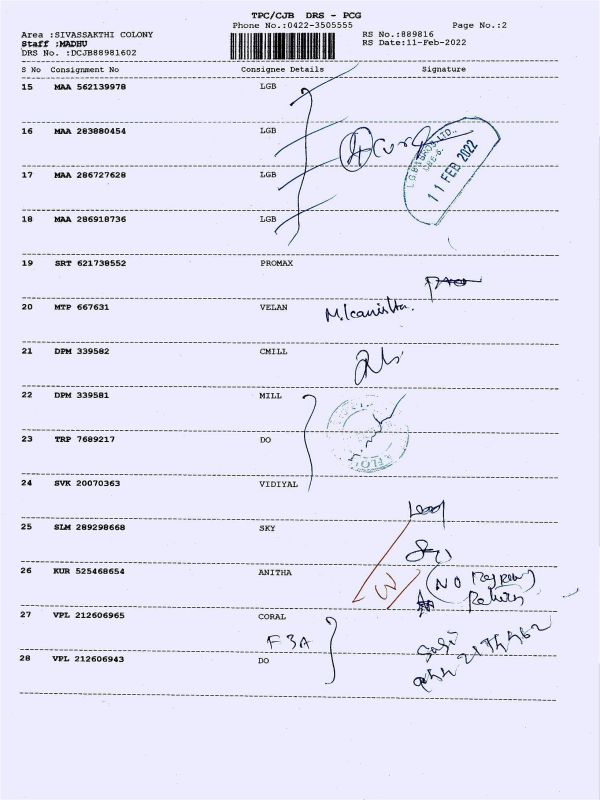 TPC/CJB DRS - PCG
Phone No.:0422-3505555
Page No.:2
Area :SIVASSAKTHI COLONY
RS No.:889816
Staff :MADHU
RS Date:11-Feb-2022
DRS No. :DCJB88981602
S No Consignment No Consignee Details Signature
15 MAA 562139978 LGB
16 MAA 283880454 LGB
L.G.B & BROS. LTD.,
CBE-6.
11 FEB 2022
17 MAA 286727628 LGB
18 MAA 286918736 LGB
19 SRT 621738552 PROMAX
20 MTP 667631 VELAN
21 DPM 339582 CMILL
22 DPM 339581 MILL
23 TRP 7689217 DO
24 SVK 20070363 VIDIYAL
25 SLM 289298668 SKY
26 KUR 525468654 ANITHA
NO
Return
27 VPL 212606965 CORAL
F3A
28 VPL 212606943 DO